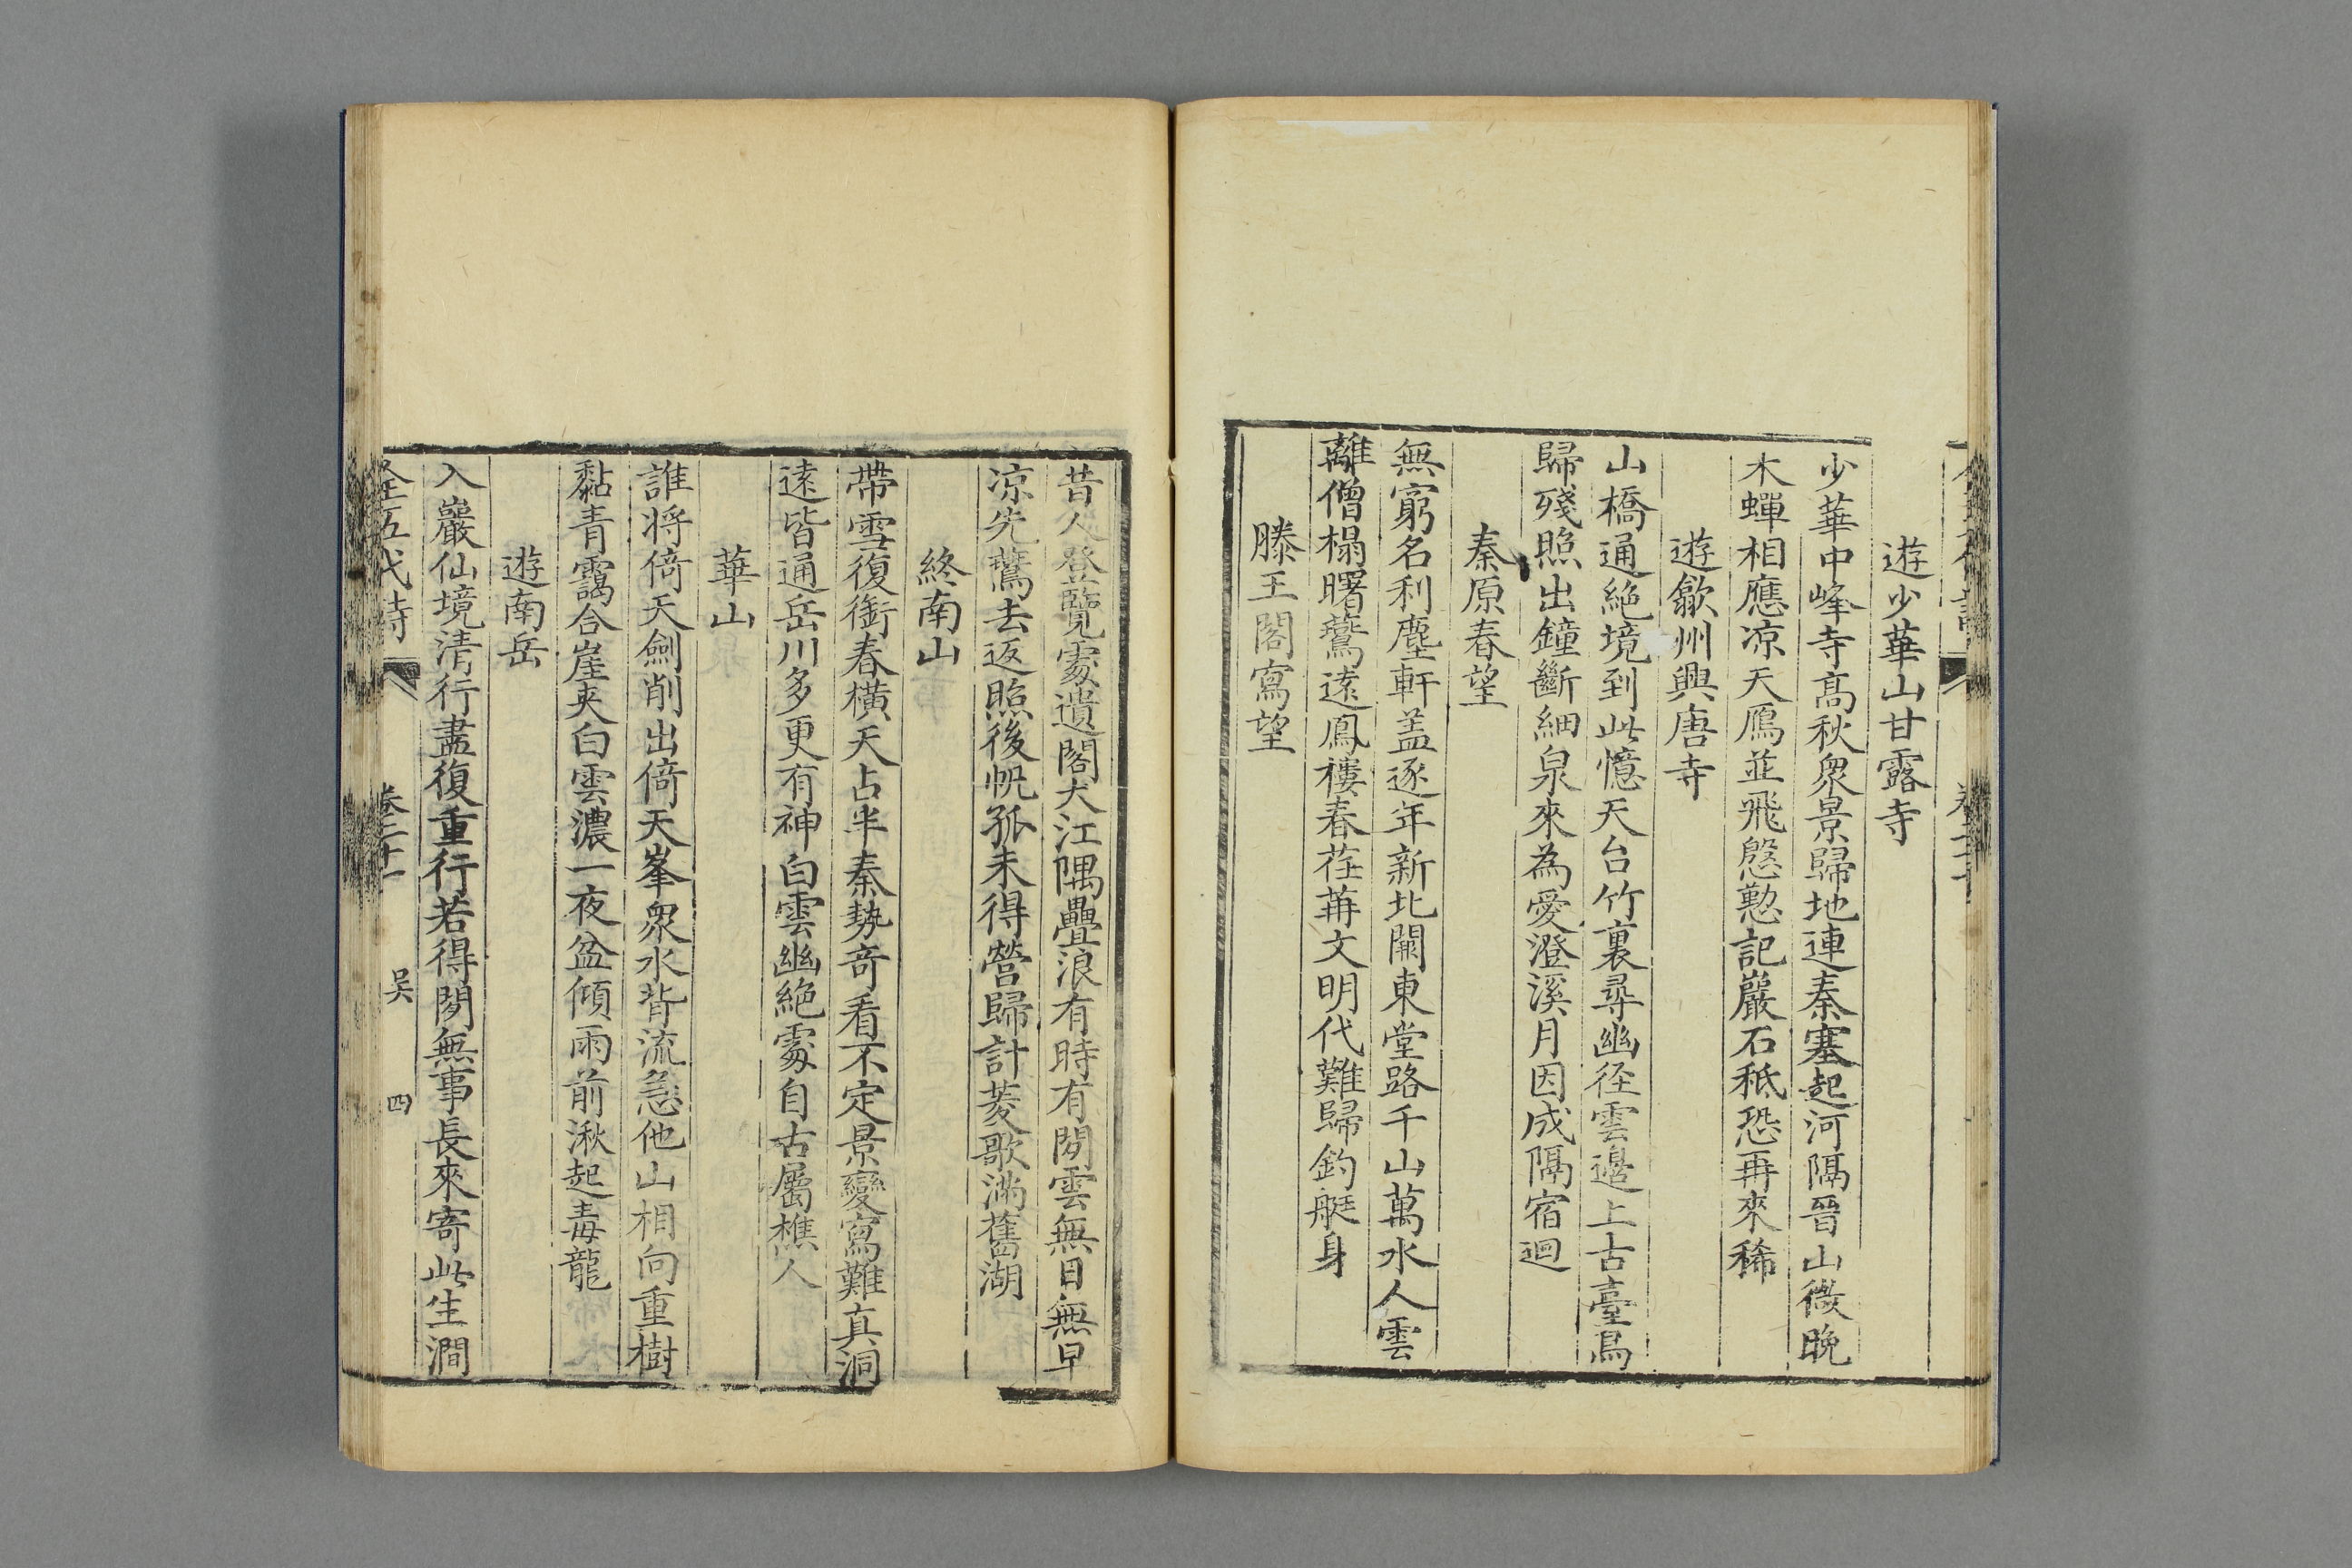 遊少華山甘露寺
少華中峰寺高秋衆景歸地連秦塞起河隔晉山微晚
木蟬相應凉天鴈並飛慇懃記巖石秪恐再來稀
遊歙州興唐寺
山橋通絶境到此憶天台竹裏尋幽径雲邉上古臺鳥
歸殘照出鐘斷細泉來為愛澄溪月因成隔宿迴
秦原春望
無窮名利塵軒盖逐年新北闕東堂路千山萬水人雲
離僧榻曙鶯遠鳳樓春荏苒文明代難歸釣艇身
滕王閣寫望
昔人登覽處遺閣大江隅疊浪有時有閒雲無日無早
凉先鶯去返照後帆孤未得營歸計菱歌滿舊湖
終南山
帶雪復銜春横天占半秦勢奇看不定景變寫難真洞
遠皆通岳川多更有神白雲幽絶處自古屬樵人
華山
誰将倚天劍削出倚天峯衆水背流急他山相向重樹
黏青靄合崖夾白雲濃一夜盆傾雨前湫起毒龍
遊南岳
入巖仙境清行盡復重行若得閒無事長來寄此生澗
全五代詩 卷二十一 吴 四